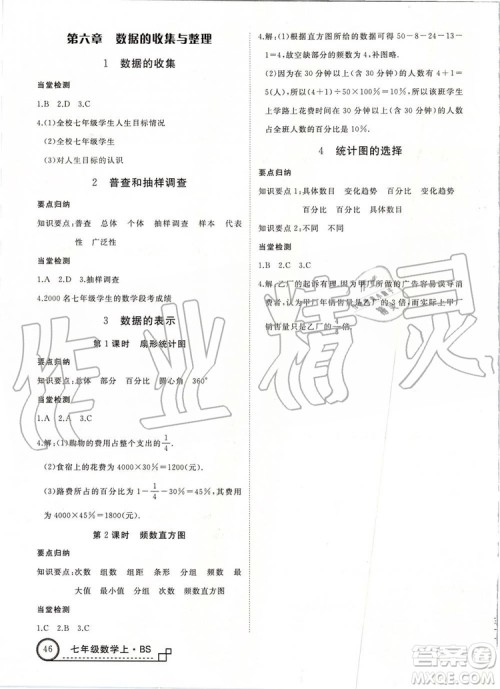 第六章 数据的收集与整理
1 数据的收集
当堂检测
1.B 2.D 3.C
4.(1)全校七年级学生人生目标情况
(2)全校七年级学生
(3)对人生目标的认识
2 普查和抽样调查
要点归纳
知识要点:普查 总体 个体 抽样调查 样本 代表
性 广泛性
当堂检测
1.A 2.D 3.抽样调查
4.2000 名七年级学生的数学段考成绩
3 数据的表示
第1课时 扇形统计图
要点归纳
知识要点:总体 部分 百分比 圆心角 360°
当堂检测
1.A 2.A 3.C
4.解:(1)购物的费用占整个支出的1/4.
(2)食宿上的花费为 4000×30%=1200(元).
(3)路费所占的百分比为 1-1/4-30%=45%,
4000×45%=1800(元).
第2课时 频数直方图
要点归纳
知识要点:次数 组距 条形 分组 次数 最
大值 最小值 分组 次数 数据
当堂检测
1.C 2.B 3.C
4.解:(1)根据直方图所给的数据可得 50-8-24-13-
1=4,故空缺部分为 4,补图略.
(2)因为在 30 分钟以上(含 30 分钟)的人数为 4+1=
5(人),所以(4+1)÷50=10%,所以该班学
生上学路上花费时间在 30 分钟以上(含 30 分钟)的人数
占全班人数的百分比是 10%.
4 统计图的选择
要点归纳
知识要点 1:具体数目 变化趋势 百分比 具体数目
变化趋势 百分比
知识要点 2:不同 不同
当堂检测
1.B 2.B 3.C
4.解:乙厂的起诉有理.因为甲厂所做的广告容易误导消
费者,认为甲厂销售量是乙厂的 3 倍,而实际上甲厂
46 七年级数学上·BS
作业精灵